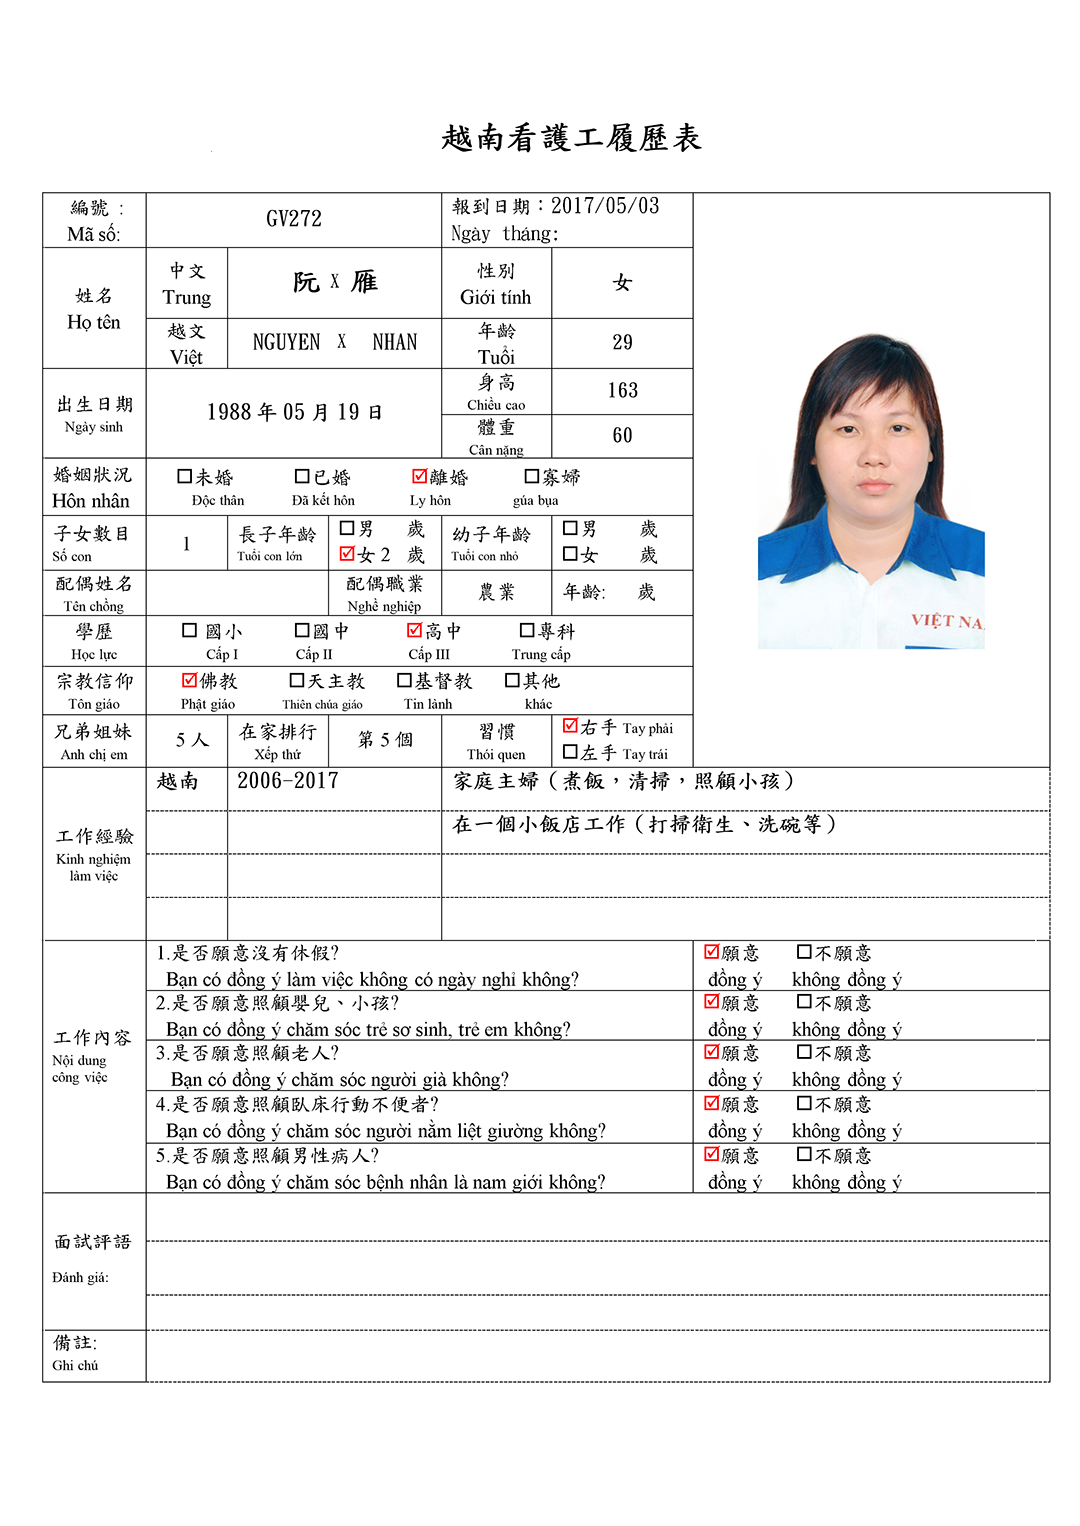 越南看護工履歷表
編號 : GV272 報到日期：2017/05/03
Mã số: Ngày tháng:
姓名 中文 阮 X 雁 性別 女
Họ tên Trung Giới tính
越文 NGUYEN X NHAN 年齡 29
Việt Tuổi
出生日期 1988 年 05 月 19 日 身高 163
Ngày sinh Chiều cao
體重 60
Cân nặng
婚姻狀況 ☐未婚 ☐已婚 ☑離婚 ☐寡婦
Hôn nhân Độc thân Đã kết hôn Ly hôn gúa bụa
子女數目 1 長子年齡 ☐男 歲 幼子年齡 ☐男 歲
Số con Tuổi con lớn ☑女 2 歲 Tuổi con nhỏ ☐女 歲
配偶姓名 配偶職業 農業 年齡: 歲
Tên chồng Nghề nghiệp
學歷 ☐ 國小 ☐國中 ☑高中 ☐專科
Học lực Cấp I Cấp II Cấp III Trung cấp
宗教信仰 ☑佛教 ☐天主教 ☐基督教 ☐其他
Tôn giáo Phật giáo Thiên chúa giáo Tin lành khác
兄弟姐妹 5 人 在家排行 第 5 個 習慣 ☑右手 Tay phải
Anh chị em Xếp thứ Thói quen ☐左手 Tay trái
VIỆT NA
工作經驗 越南 2006-2017 家庭主婦（煮飯，清掃，照顧小孩）
Kinh nghiệm 在一個小飯店工作（打掃衛生、洗碗等）
làm việc
工作內容
Nội dung
công việc
1.是否願意沒有休假? ☑願意 ☐不願意
Bạn có đồng ý làm việc không có ngày nghỉ không? đồng ý không đồng ý
2.是否願意照顧嬰兒、小孩? ☑願意 ☐不願意
Bạn có đồng ý chăm sóc trẻ sơ sinh, trẻ em không? đồng ý không đồng ý
3.是否願意照顧老人? ☑願意 ☐不願意
Bạn có đồng ý chăm sóc người già không? đồng ý không đồng ý
4.是否願意照顧臥床行動不便者? ☑願意 ☐不願意
Bạn có đồng ý chăm sóc người nằm liệt giường không? đồng ý không đồng ý
5.是否願意照顧男性病人? ☑願意 ☐不願意
Bạn có đồng ý chăm sóc bệnh nhân là nam giới không? đồng ý không đồng ý
面試評語
Đánh giá:
備註:
Ghi chú